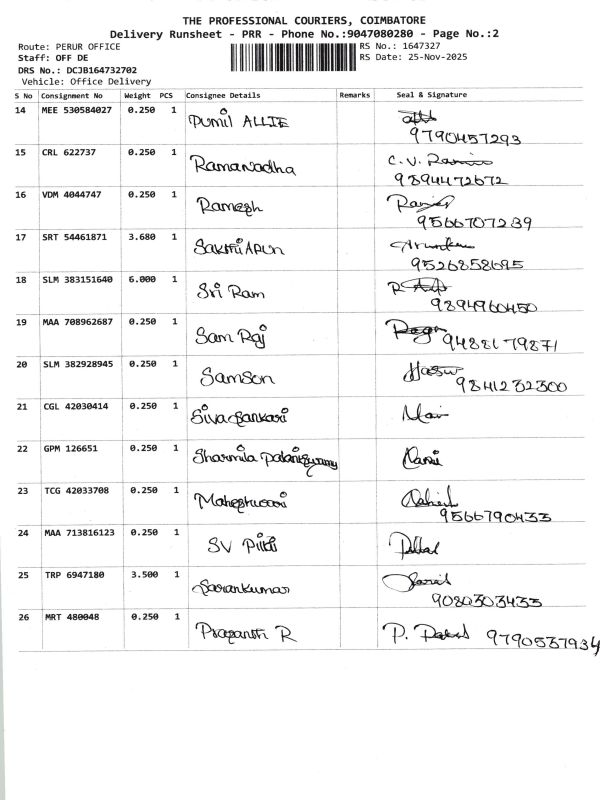 THE PROFESSIONAL COURIERS, COIMBATORE
Delivery Runsheet - PRR - Phone No.:9047080280 - Page No.:2
Route: PERUR OFFICE RS No.: 1647327
Staff: OFF DE RS Date: 25-Nov-2025
DRS No.: DCJB164732702
Vehicle: Office Delivery
S No Consignment No Weight PCS Consignee Details Remarks Seal & Signature
14 MEE 530584027 0.250 1 ALLIE
9790457293
15 CRL 622737 0.250 1 Ramanadha C.V.
9894472672
16 VDM 4044747 0.250 1 Ramesh
9566707239
17 SRT 54461871 3.680 1 Sakthi ARUN
9526858695
18 SLM 383151640 6.000 1 Sri Ram
9894960450
19 MAA 708962687 0.250 1 Sam Raj
9488179871
20 SLM 382928945 0.250 1 Samson
9841232300
21 CGL 42030414 0.250 1 Sivasankari
22 GPM 126651 0.250 1 Sharmila Palaniswamy
23 TCG 42033708 0.250 1 Maheshwari
9566790433
24 MAA 713816123 0.250 1 SV
25 TRP 6947180 3.500 1 Sarankumar
9080303433
26 MRT 480048 0.250 1 Prasanth R P. 9790537934